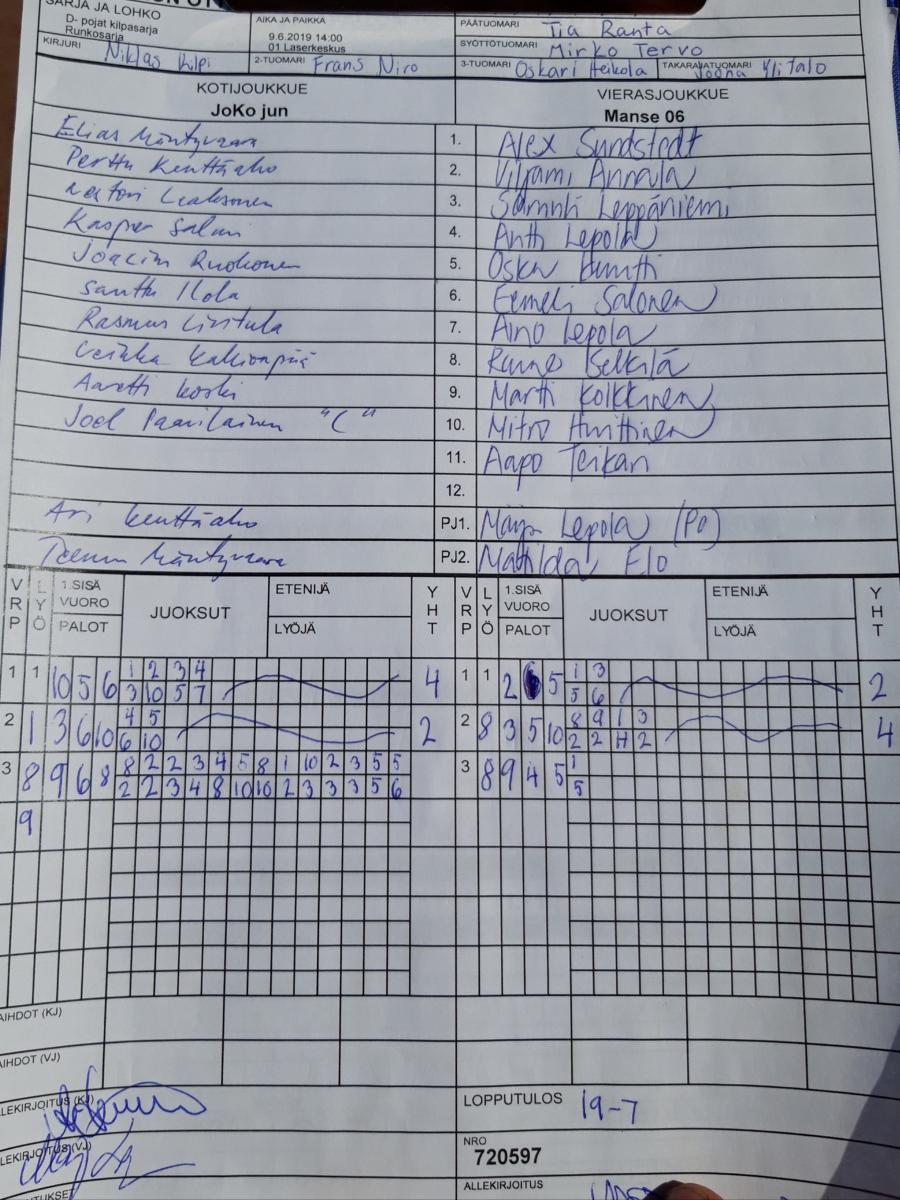 SARJA JA LOHKO
D- pojat kilpasarja
Runkosarja
AIKA JA PAIKKA
9.6.2019 14:00
01 Laserkeskus
PÄÄTUOMARI Tia Ranta
SYÖTTÖTUOMARI Mirko Tervo
KIRJURI Niklas Kilpi
2-TUOMARI Frans Niro
3-TUOMARI Oskari Heikola
TAKARAJATUOMARI Joona Ylitalo
KOTIJOUKKUE
JoKo jun
VIERASJOUKKUE
Manse 06
Elias Mäntyvaara 1. Alex Sundstedt
Perttu Kenttäaho 2. Viljami Annala
Laaksonen 3. Samuli Leppäniemi
Kasper Salmi 4. Antti Lepola
Joacim Ruohonen 5. Osku
Santtu Ilola 6. Eemeli Salonen
Rasmus 7. Aino Lepola
Veikka 8.
Aaretti Koski 9. Martti Kolkkinen
Joel Paarilainen "C" 10. Mitro Huittinen
11. Aapo Teikari
12.
Ari Kenttäaho PJ1. Lepola (Po)
Teemu Mäntyvaara PJ2. Mathilda Elo
VRP LYÖ 1.SISÄ VUORO PALOT JUOKSUT ETENIJÄ LYÖJÄ YHT VRP LYÖ 1.SISÄ VUORO PALOT JUOKSUT ETENIJÄ LYÖJÄ YHT
1 1 10 5 6 1 2 3 4 4 1 1 2 6 5 1 3 2
3 10 5 7 5 6
2 1 3 6 10 4 5 2 2 8 3 5 10 8 9 1 3 4
6 10 2 2 H 2
3 8 9 6 8 8 2 2 3 4 5 8 1 10 2 3 5 5 3 8 9 4 5 1
2 2 3 4 8 10 10 2 3 3 3 5 6 5
9
AIHDOT (KJ)
AIHDOT (VJ)
LEKIRJOITUS (KJ)
LOPPUTULOS 19-7
LEKIRJOITUS (VJ)
NRO
720597
UTUKSET
ALLEKIRJOITUS